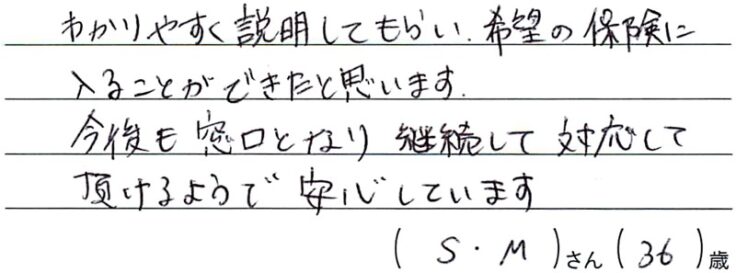 わかりやすく説明してもらい、希望の保険に
入ることができたと思います。
今後も窓口となり継続して対応して
頂けるようで安心しています
(S・M)さん(36)歳